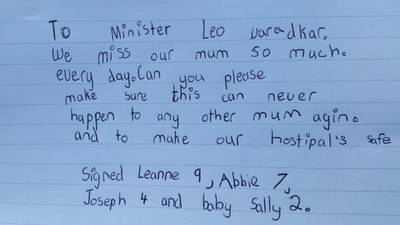 To Minister Leo varadkar.
We miss our mum so much.
every day. Can you please
make sure this can never
happen to any other mum agin.
and to make our hostipal's safe
Signed Leanne 9, Abbie 7,
Joseph 4 and baby Sally 2.